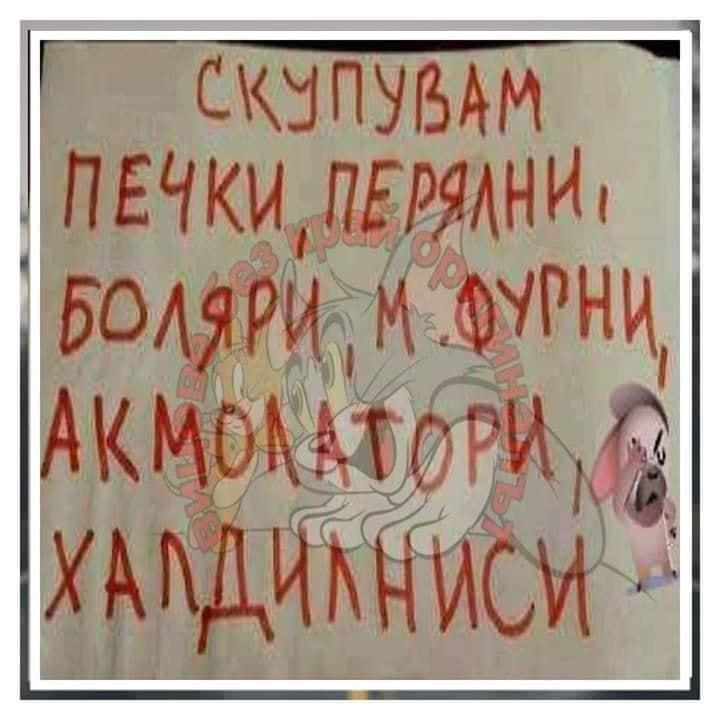 СКУПУВАМ
ПЕЧКИ, ПЕРЯЛНИ,
БОЛЯРИ, М. ФУРНИ,
АКМОЛАТОРИ,
ХАЛДИЛНИСИ
Вицове без край оригинальт